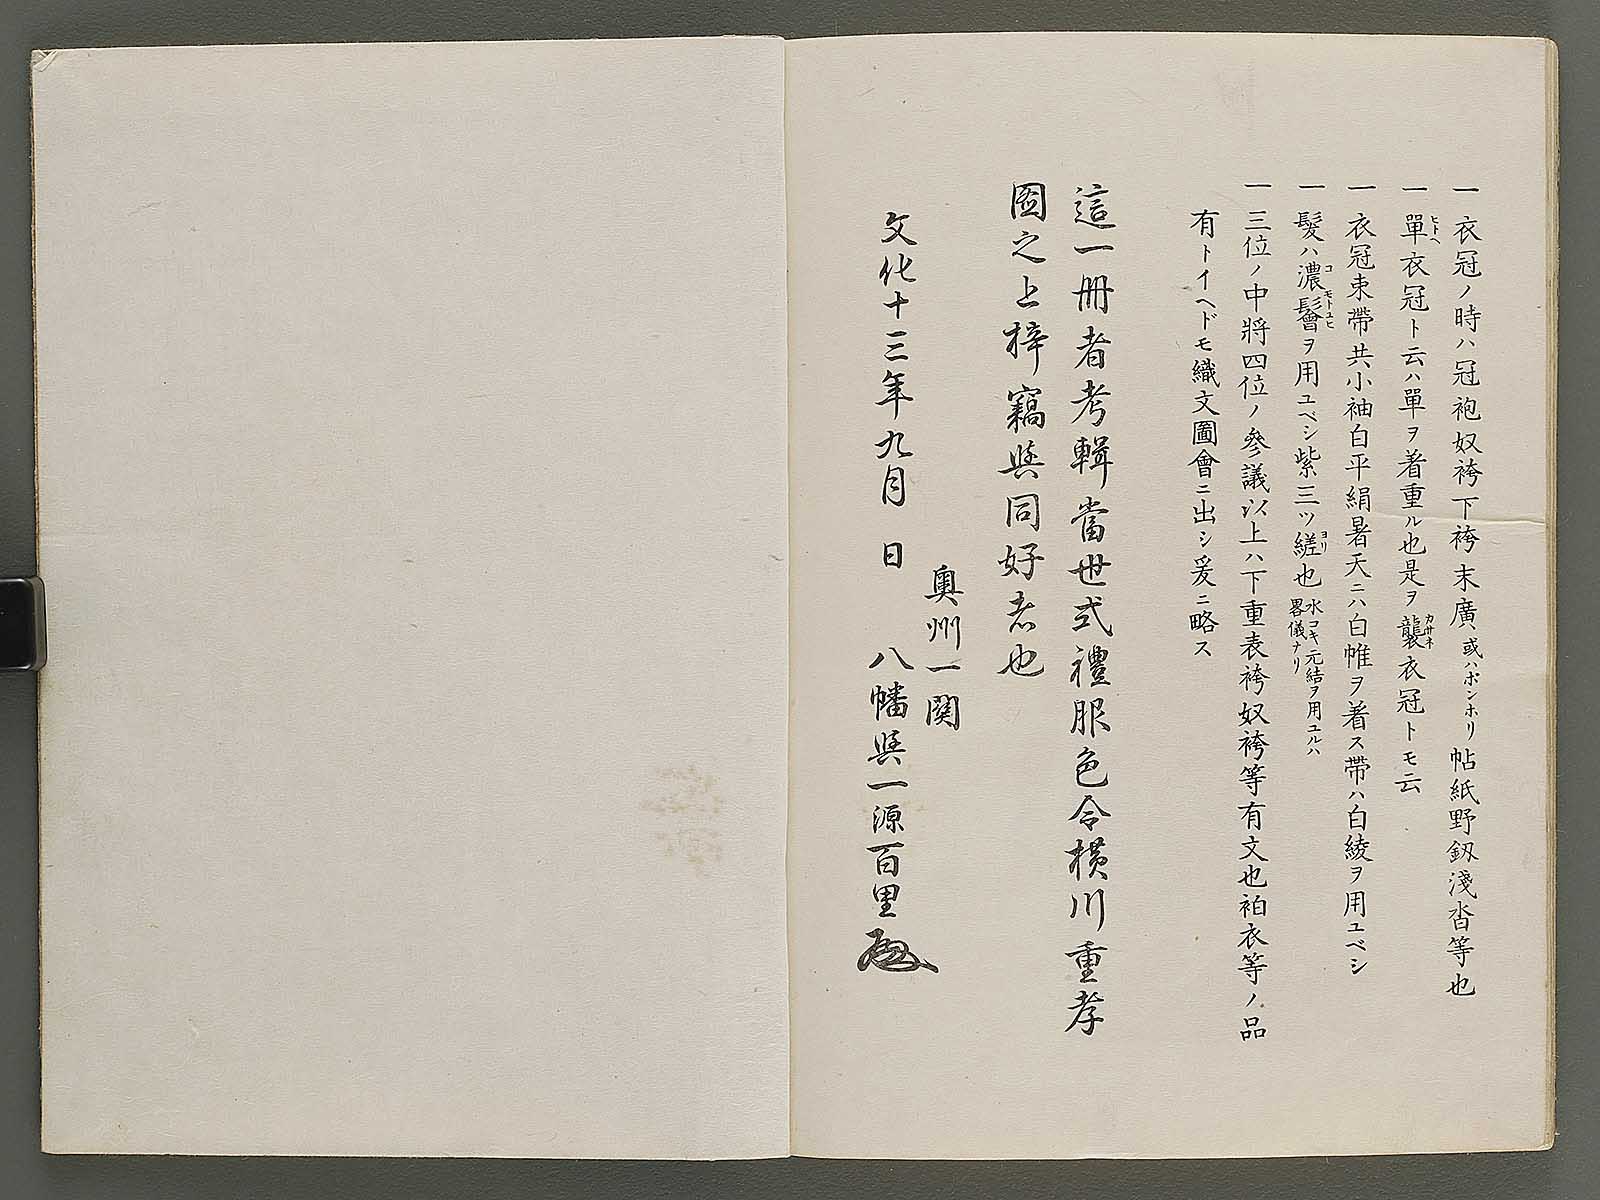 一 衣冠ノ時ハ冠袍奴袴下袴末廣或ハボンホリ帖紙野釼淺沓等也
一 單衣冠ト云ハ單ヲ着重ル也是ヲ襲衣冠トモ云
ヒトヘ
カサネ
一 衣冠束帶共小袖白平絹暑天ニハ白帷ヲ着ス帶ハ白綾ヲ用ユベシ
一 髮ハ濃鬠ヲ用ユベシ紫三ツ縒也
コ モトユヒ
ヨリ
水コキ元結ヲ用ユルハ
畧儀ナリ
一 三位ノ中將四位ノ參議以上ハ下重表袴奴袴等有文也袙衣等ノ品
有トイヘドモ織文圖會ニ出シ爰ニ略ス
這一冊者考輯當世式禮服色令横川重孝
圖之上梓竊與同好志也
文化十三年九月 日
奥州一関
八幡與一源百里